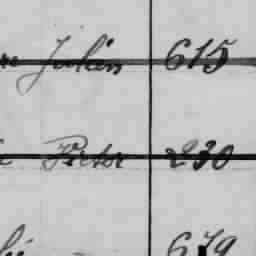 Julien 615
Victor 230
679